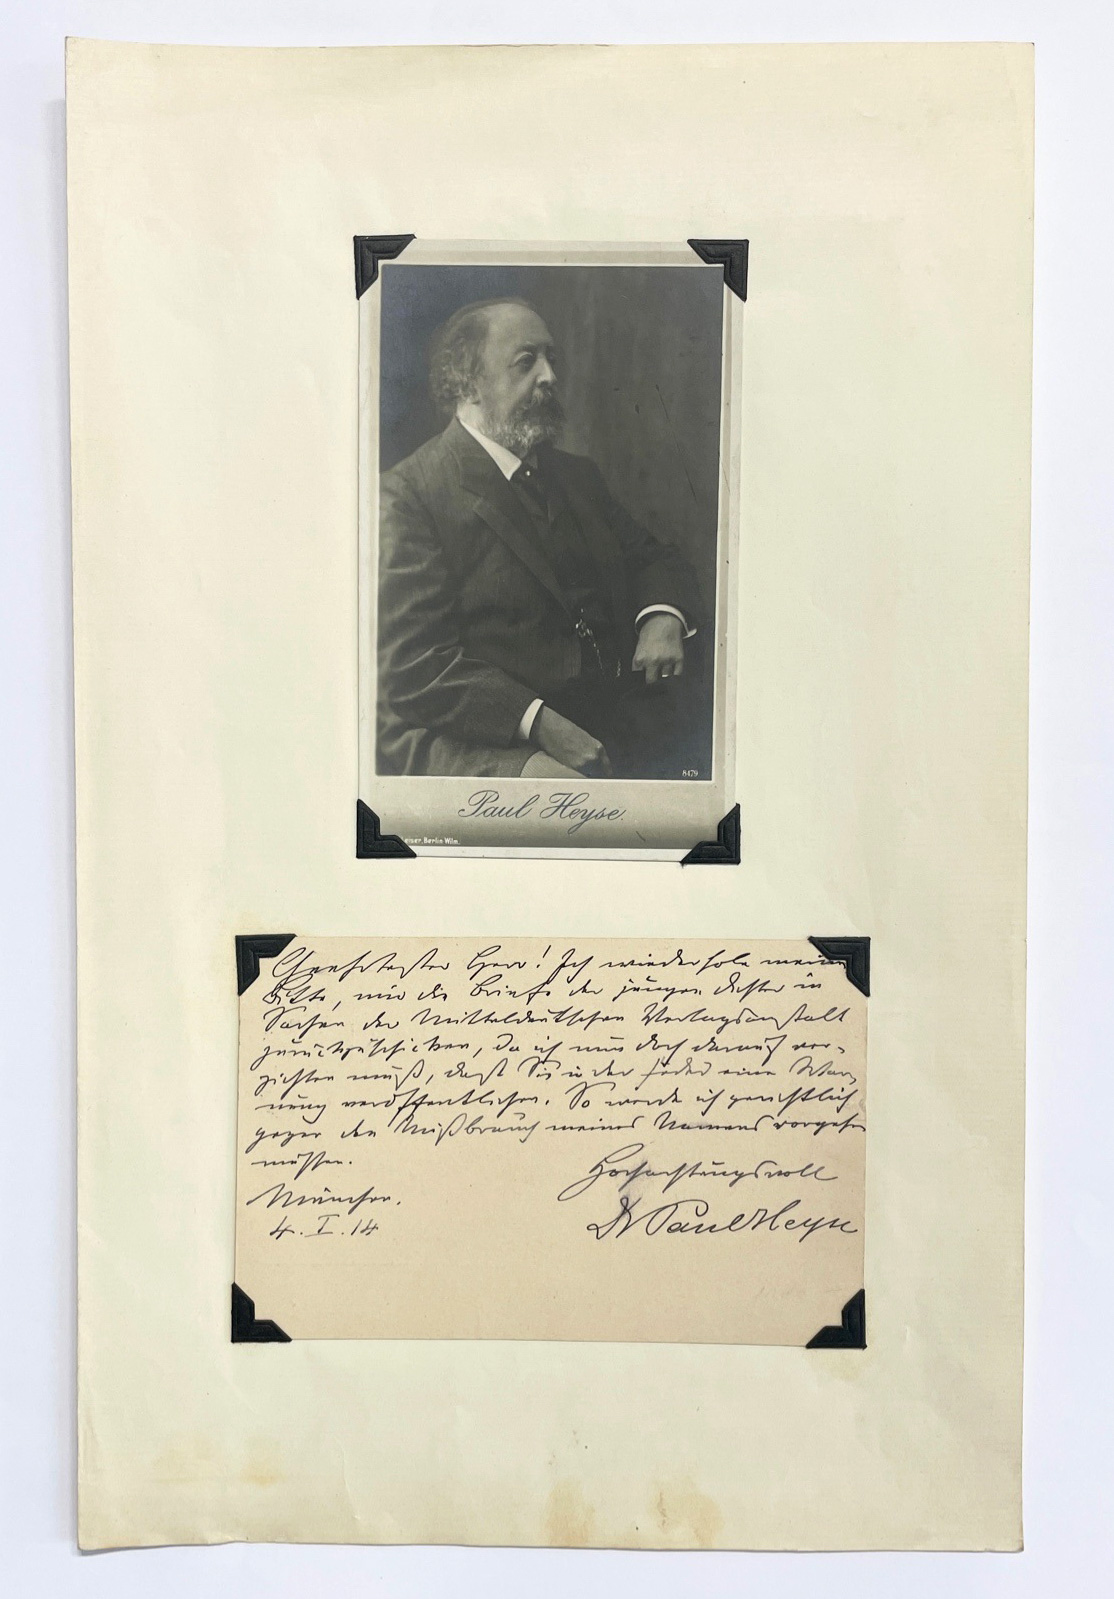 8479
Paul Heyse.
eiser, Berlin Wilm.
Geehrtester Herr! Ich wiederhole meine
Bitte, mir die Briefe der jungen Dichter in
Sachen der Mitteldeutschen Verlagsanstalt
zurückzuschicken, da ich nun doch darauf ver-
zichten muß, daß Sie in der Feder eine War-
nung veröffentlichen. So werde ich gerichtlich
gegen den Mißbrauch meines Namens vorgehen
müssen.
Hochachtungsvoll
München.
4. I. 14
Dr Paul Heyse